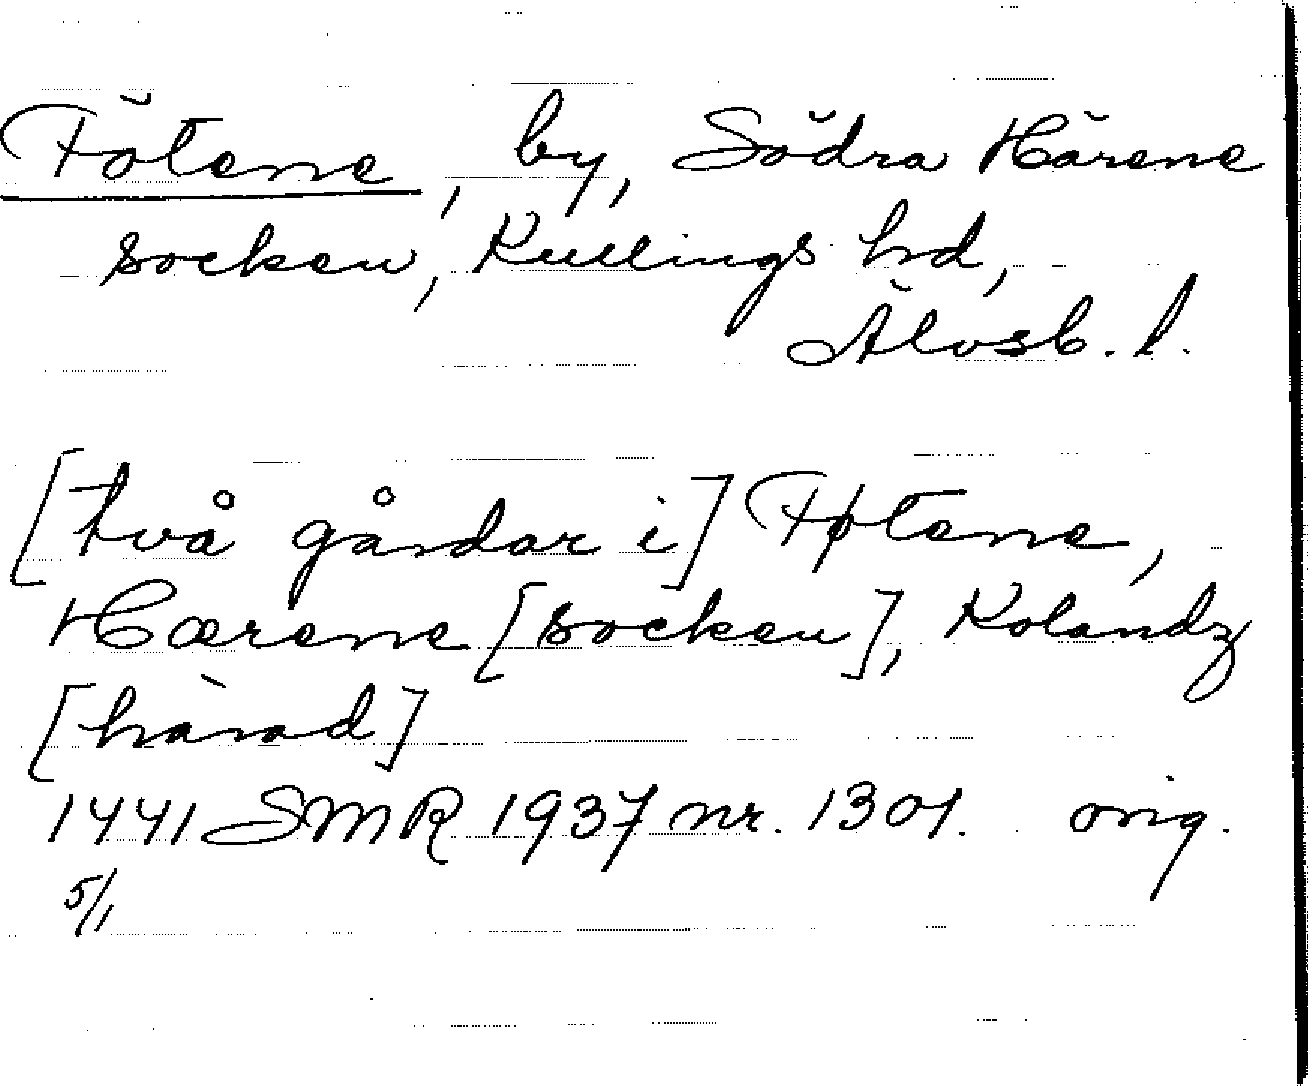 Fötene, by, Södra Härene
socken, Kullings hd,
Älvsb. l.
[två gårdar i] Føtene,
Hærene [socken], Kolandz
[härad]
1441 SMR 1937 nr. 1301. orig.
5/1